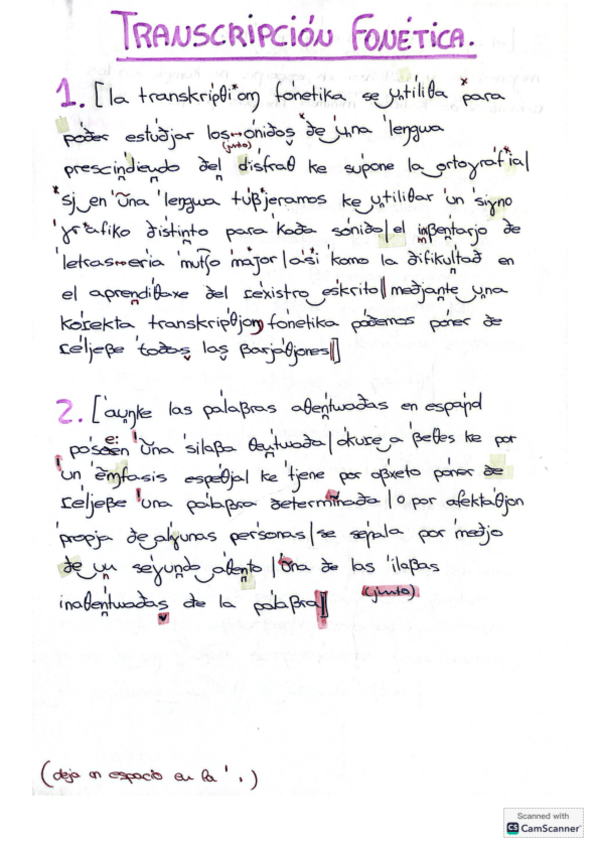 TRANSCRIPCIÓN FONÉTICA.
1. [la transkripθi̯oŋ fonétika se u̯tiliθa para
poðer estuðjar los soniðos ðe una lengwa
(junto)
presciṉdiendo ðel disfraθ ke supone la ortoɣrafia|
sj en una lengwa tuβjeramos ke utiliθar un siɣno
ɣrafiko distinto para kaða soniðo| el imβentarjo ðe
letras seria mutʃo major| asi komo la difikultað en
el aprendiθaxe ðel r̄existro eskrito‖ meðjante una
kor̄ekta transkripθjoŋ fonetika poðemos poner ðe
r̄eljeβe toðos las βarjaθjones‖]
2. [au̯nke las palabras aθentwaðas en español
e:
poseen una silaβa θentwaða| okur̄e a βeθes ke por
un emfasis espeθjal ke tjene por oβxeto poner ðe
r̄eljeβe una palaβra ðeterminaða| o por afektaθjon
propja ðe alɣunas personas| se seɲala por meðjo
ðe un seɣundo aθento| una de las ilaβas
(junto)
inaθentwaðas de la palaβra‖]
(deja un espacio en la ' .)
Scanned with
CS CamScanner